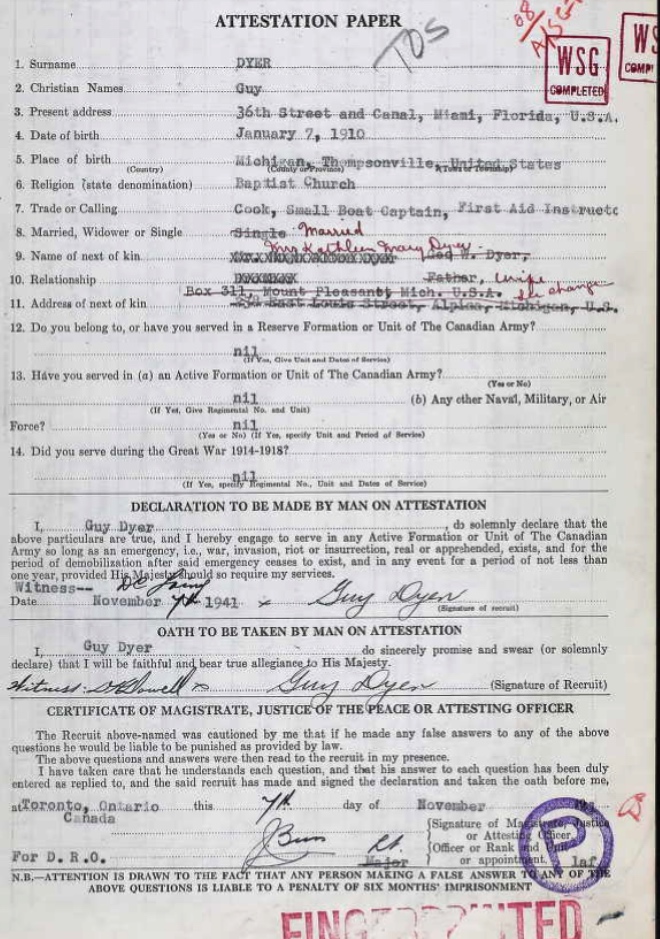 ATTESTATION PAPER
TOS
WSG
COMPLETED
1. Surname DYER
2. Christian Names Guy
3. Present address 36th Street and Canal, Miami, Florida, U.S.A.
4. Date of birth January 7, 1910
5. Place of birth Michigan, Thompsonville, United States
(Country) (County or Province) (Town or Township)
6. Religion (state denomination) Baptist Church
7. Trade or Calling Cook, Small Boat Captain, First Aid Instructo
8. Married, Widower or Single Single Married
Mrs Kathleen Mary Dyer
9. Name of next of kin W. Dyer,
10. Relationship Father, wife
Box 311, Mount Pleasant, Mich. U.S.A.
11. Address of next of kin East Louis Street, Alpina, Michigan, U.S.
12. Do you belong to, or have you served in a Reserve Formation or Unit of The Canadian Army?
nil
(If Yes, Give Unit and Dates of Service)
13. Have you served in (a) an Active Formation or Unit of The Canadian Army?
(Yes or No)
nil (b) Any other Naval, Military, or Air
(If Yes, Give Regimental No. and Unit)
Force? nil
(Yes or No) (If Yes, specify Unit and Period of Service)
14. Did you serve during the Great War 1914-1918?
nil
(If Yes, specify Regimental No., Unit and Dates of Service)
DECLARATION TO BE MADE BY MAN ON ATTESTATION
I, Guy Dyer, do solemnly declare that the
above particulars are true, and I hereby engage to serve in any Active Formation or Unit of The Canadian
Army so long as an emergency, i.e., war, invasion, riot or insurrection, real or apprehended, exists, and for the
period of demobilization after said emergency ceases to exist, and in any event for a period of not less than
one year, provided His Majesty should so require my services.
Witness--
Date November 7th 1941 x Guy Dyer
(Signature of recruit)
OATH TO BE TAKEN BY MAN ON ATTESTATION
I, Guy Dyer do sincerely promise and swear (or solemnly
declare) that I will be faithful and bear true allegiance to His Majesty.
Witness: x Guy Dyer (Signature of Recruit)
CERTIFICATE OF MAGISTRATE, JUSTICE OF THE PEACE OR ATTESTING OFFICER
The Recruit above-named was cautioned by me that if he made any false answers to any of the above
questions he would be liable to be punished as provided by law.
The above questions and answers were then read to the recruit in my presence.
I have taken care that he understands each question, and that his answer to each question has been duly
entered as replied to, and the said recruit has made and signed the declaration and taken the oath before me,
at Toronto, Ontario this 7th day of November
Canada
(Signature of Magistrate, Justice
or Attesting Officer,
(Officer or Rank and Unit
For D.R.O. Major or appointment. laf
P
N.B.—ATTENTION IS DRAWN TO THE FACT THAT ANY PERSON MAKING A FALSE ANSWER TO ANY OF THE
ABOVE QUESTIONS IS LIABLE TO A PENALTY OF SIX MONTHS' IMPRISONMENT
FINGERPRINTED